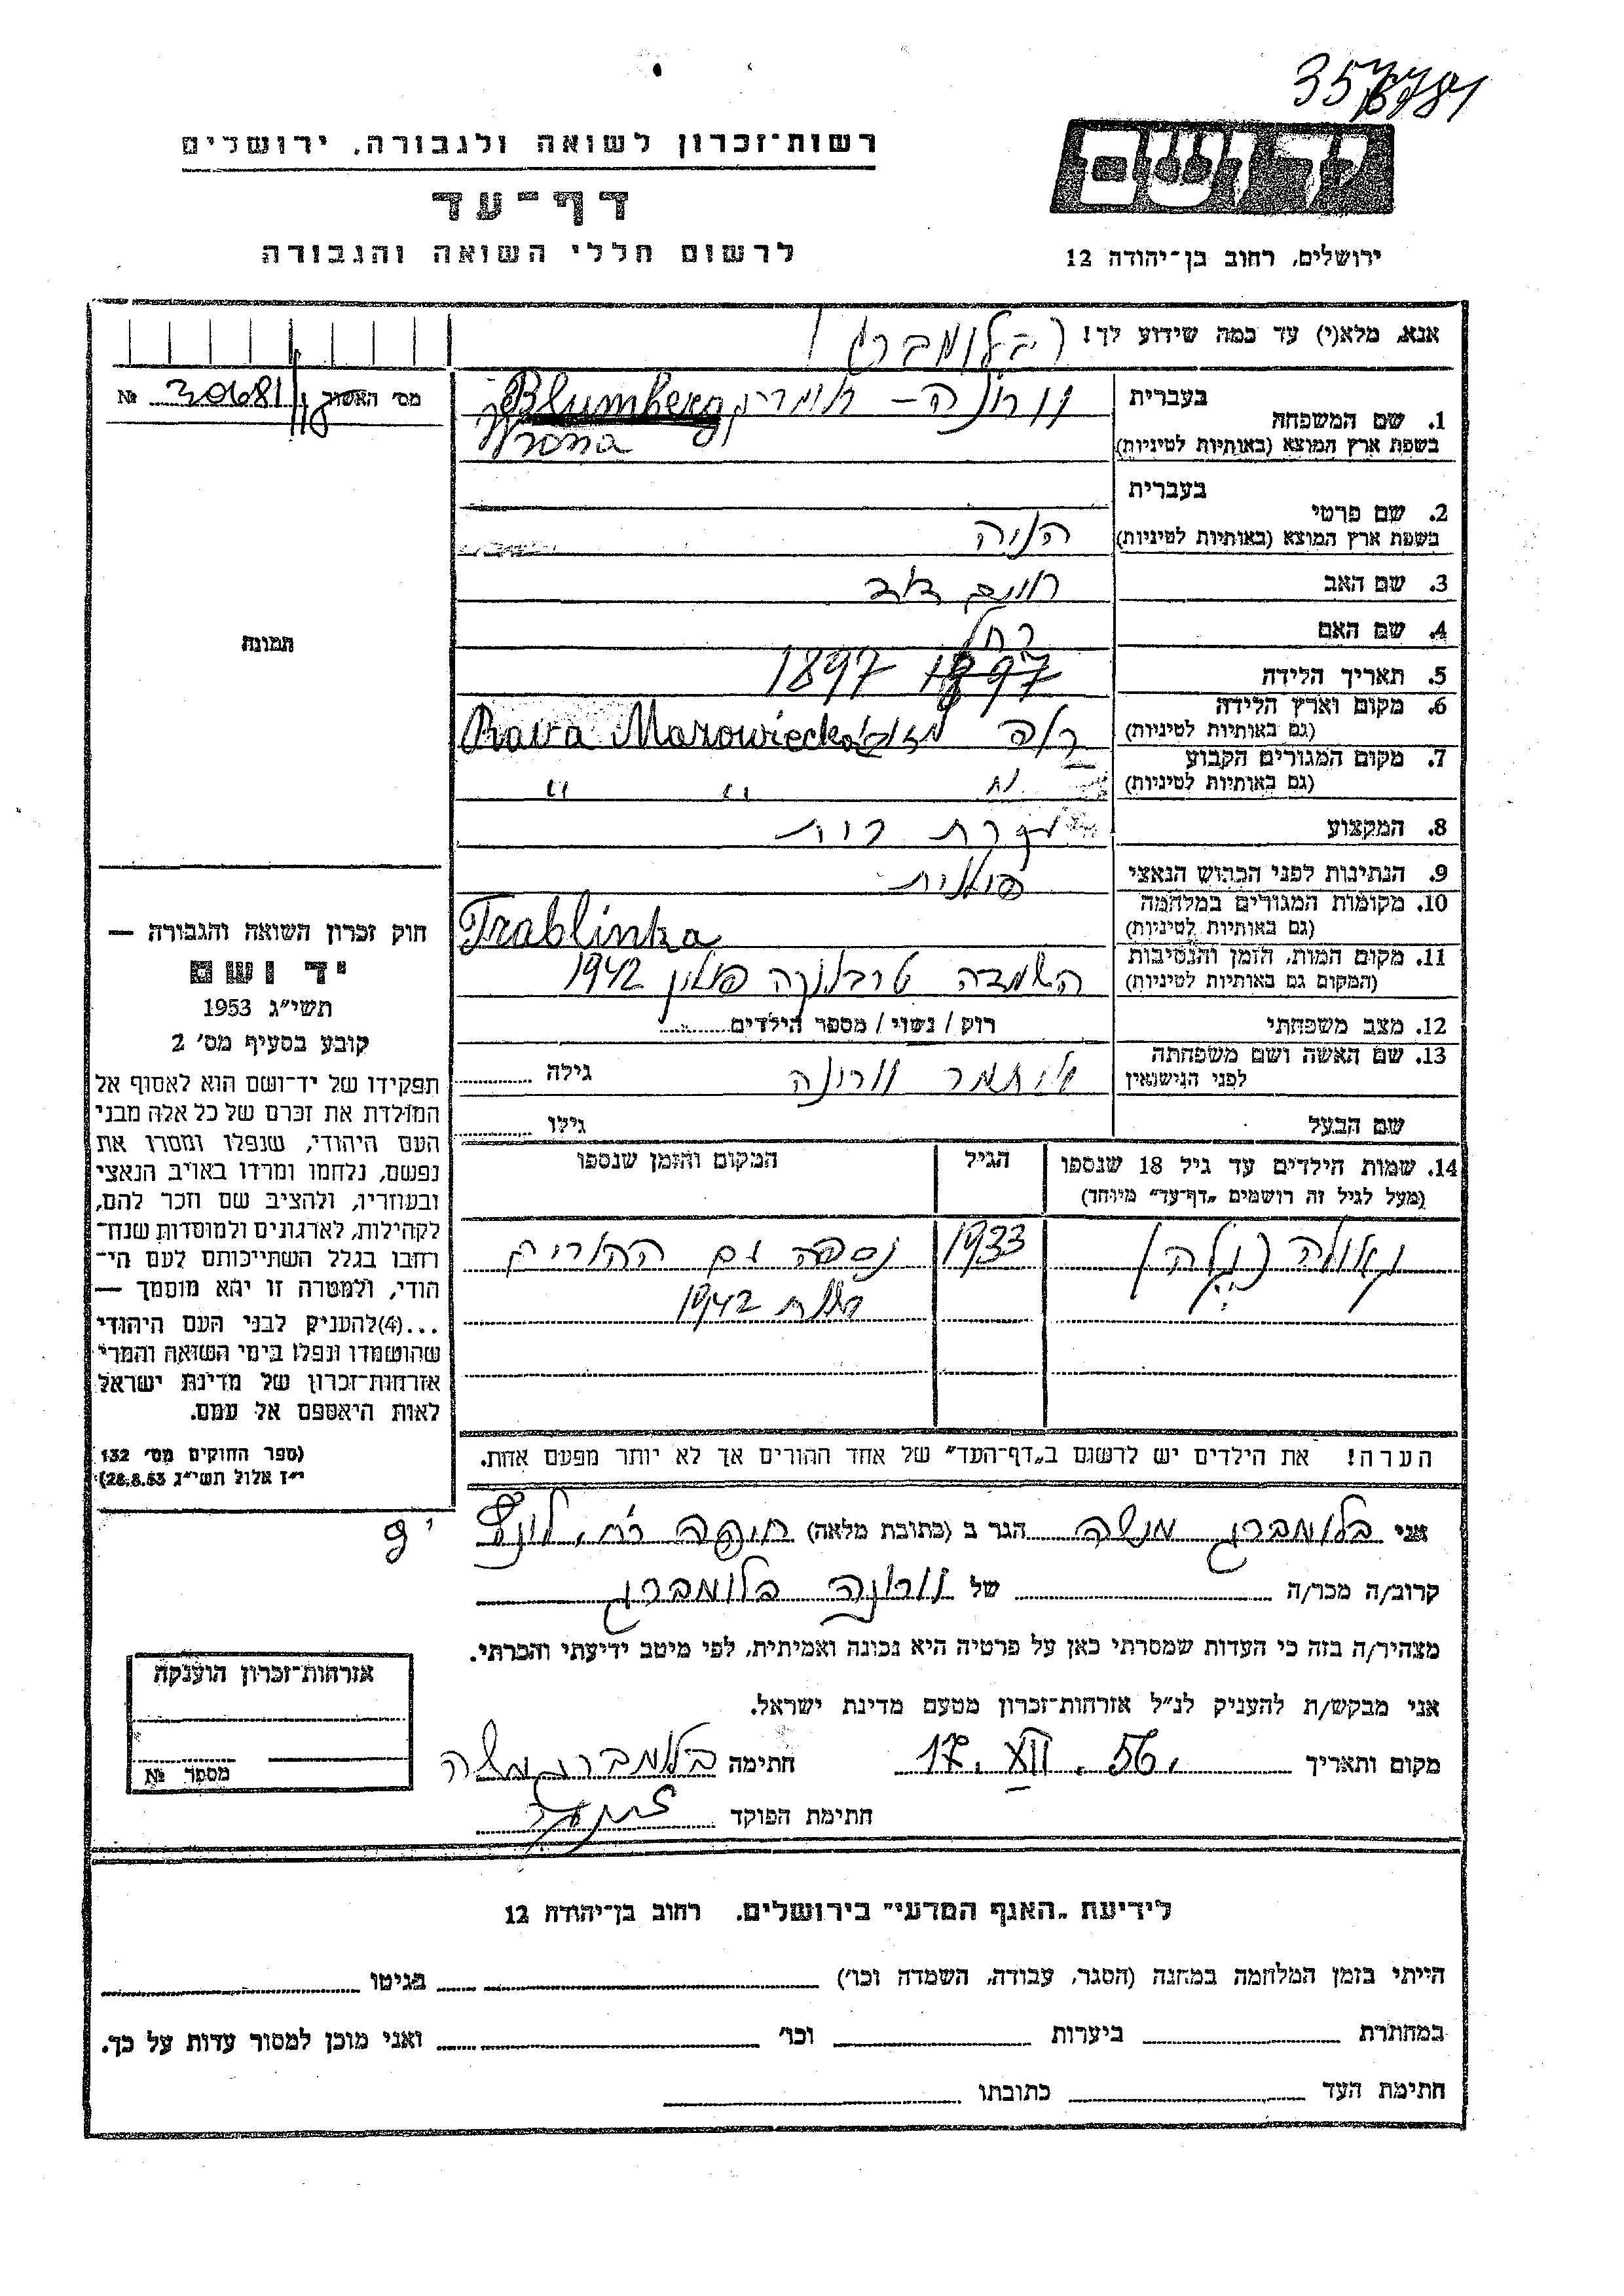 רשות־זכרון לשואה ולגבורה, ירושלים
דף־עד
לרשום חללי השואה והגבורה
יד ושם
ירושלים, רחוב בן־יהודה 12
אנא, מלא(י) עד כמה שידוע לך!
(בלומברג)
מס׳ האשור № 30681
1. שם המשפחה
בעברית
וורונה –
בשפת ארץ המוצא (באותיות לטיניות)
Blumberg
Wrona
2. שם פרטי
בעברית
בשפת ארץ המוצא (באותיות לטיניות)
חנה
3. שם האב חיים דוד
4. שם האם רחל
5. תאריך הלידה 1897 1897
6. מקום וארץ הלידה
(גם באותיות לטיניות)
Rava Mazowiecka
7. מקום המגורים הקבוע
(גם באותיות לטיניות)
" " "
8. המקצוע עקרת בית
9. הנתינות לפני הכבוש הנאצי פולנית
10. מקומות המגורים במלחמה
(גם באותיות לטיניות)
Trablinka
11. מקום המות, הזמן והנסיבות
(המקום גם באותיות לטיניות)
השמדה טרבלינקה פולין 1942
12. מצב משפחתי רוק / נשוי / מספר הילדים
13. שם האשה ושם משפחתה
לפני הנישואין
איתמר וורונה
גילה
שם הבעל
גילו
14. שמות הילדים עד גיל 18 שנספו
(מעל לגיל זה רושמים „דף־עד״ מיוחד)
הגיל
המקום והזמן שנספו
גאולה 1933 נספה עם ההורים
1942
הערה! את הילדים יש לרשום ב„דף־העד״ של אחד ההורים אך לא יותר מפעם אחת.
תמונה
חוק זכרון השואה והגבורה —
יד ושם
תשי״ג 1953
קובע בסעיף מס׳ 2
תפקידו של יד־ושם הוא לאסוף אל
המולדת את זכרם של כל אלה מבני
העם היהודי, שנפלו ומסרו את
נפשם, נלחמו ומרדו באויב הנאצי
ובעוזריו, ולהציב שם וזכר להם,
לקהילות, לארגונים ולמוסדות שנח־
רבו בגלל השתייכותם לעם הי־
הודי, ולמטרה זו יהא מוסמך —
...(4) להעניק לבני העם היהודי
שהושמדו ונפלו בימי השואה והמרי
אזרחות־זכרון של מדינת ישראל
לאות היאספם אל עמם.
(ספר החוקים מס׳ 132
י״ז אלול תשי״ג 28.8.53)
אני בלומברג משה הגר ב (כתובת מלאה) חיפה רח.
קרוב/ה מכר/ה של וורונה בלומברג
מצהיר/ה בזה כי העדות שמסרתי כאן על פרטיה היא נכונה ואמיתית, לפי מיטב ידיעתי והכרתי.
אני מבקש/ת להעניק לנ״ל אזרחות־זכרון מטעם מדינת ישראל.
מקום ותאריך 17. XII. 56. חתימה בלומברג משה
חתימת הפוקד
אזרחות־זכרון הוענקה
מספר №
לידיעת „האגף המדעי״ בירושלים. רחוב בן־יהודה 12
הייתי בזמן המלחמה במחנה (הסגר, עבודה, השמדה וכו׳) בגיטו
במחתרת ביערות וכו׳ ואני מוכן למסור עדות על כך.
חתימת העד כתובתו